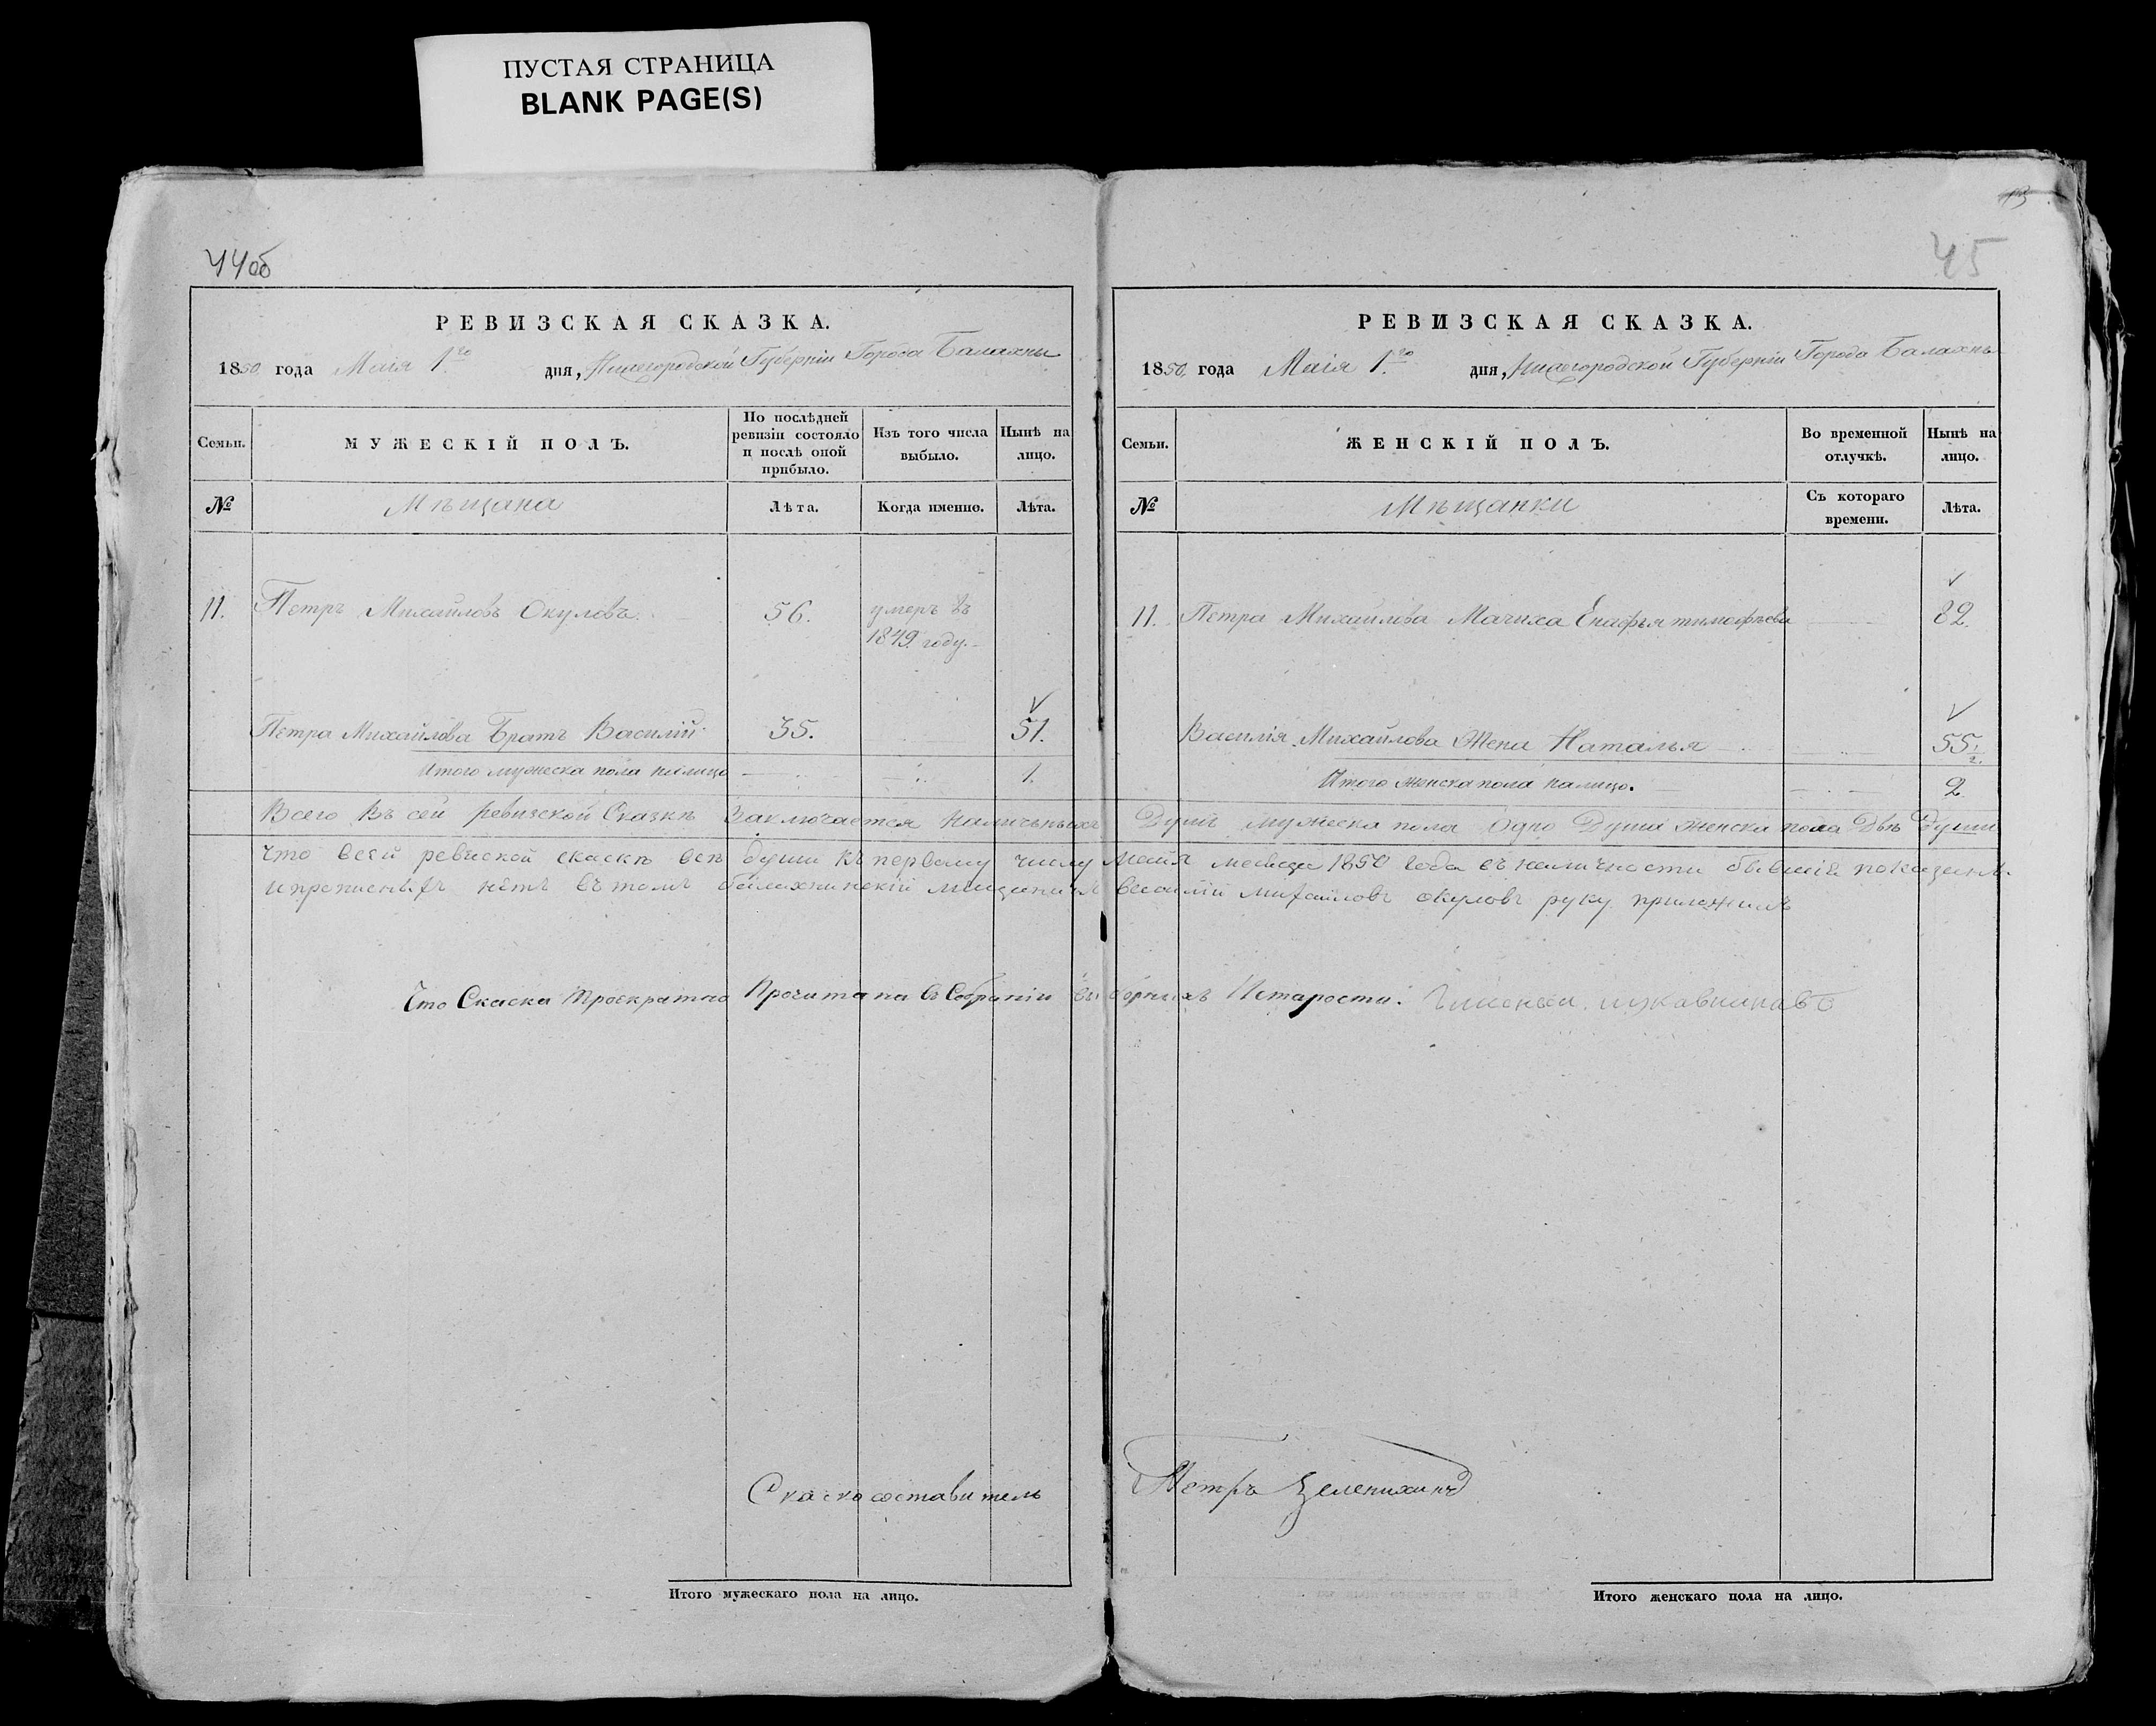 ПУСТАЯ СТРАНИЦА
BLANK PAGE(S)
44об
РЕВИЗСКАЯ СКАЗКА.
1850 года Маія 1го дня, Нижегородской Губерніи Города Балахны
Семьи.
МУЖЕСКІЙ ПОЛЪ.
По послѣдней
ревизіи состояло
и послѣ оной
прибыло.
Изъ того числа
выбыло.
Нынѣ на
лицо.
№
Мѣщана
Лѣта.
Когда именно.
Лѣта.
11. Петръ Михайловъ Окуловъ. 56. умеръ въ
1849 году.
Петра Михайлова Братъ Василий 35. 51.
Итого мужеска пола налицо 1.
45
РЕВИЗСКАЯ СКАЗКА.
1850. года Маія 1го дня, Нижегородской Губерніи Города Балахны
Семьи.
ЖЕНСКІЙ ПОЛЪ.
Во временной
отлучкѣ.
Нынѣ на
лицо.
№
Мѣщанки
Съ котораго
времени.
Лѣта.
11. Петра Михайлова Мачиха Епафья тимофѣева 82.
Василія Михайлова Жена Наталья 55
Итого женска пола налицо. 2
Всего Въ сей ревизской Сказкѣ Заключается Наличныхъ Душъ мужеска пола Одно Душа женска пола Двѣ души
что всей ревиской скаскѣ всѣ души къ первому числу майя месеца 1850 года въ наличности бывшія показаны
ипрописныхъ нѣтъ въ томъ балахнинскій мищанинъ василій михайловъ окуловъ руку приложилъ
Что Скаска Троекратно Прочитана въ Собраніи выборныхъ Истарости.
Скаскосоставитель Петръ Зеленихинъ
Итого мужескаго пола на лицо.
Итого женскаго пола на лицо.